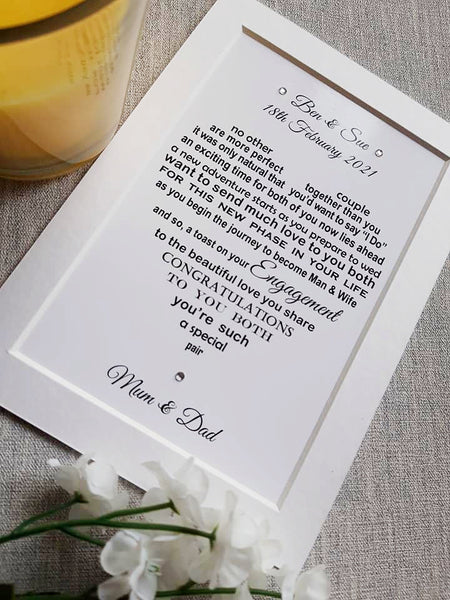 Ben & Sue
18th February 2021
no other couple
are more perfect together than you
it was only natural that you'd want to say "I Do"
an exciting time for both of you now lies ahead
a new adventure starts as you prepare to wed
want to send much love to you both
FOR THIS NEW PHASE IN YOUR LIFE
as you begin the journey to become Man & Wife
and so, a toast on your Engagement
to the beautiful love you share
CONGRATULATIONS
TO YOU BOTH
you're such
a special
pair
Mum & Dad